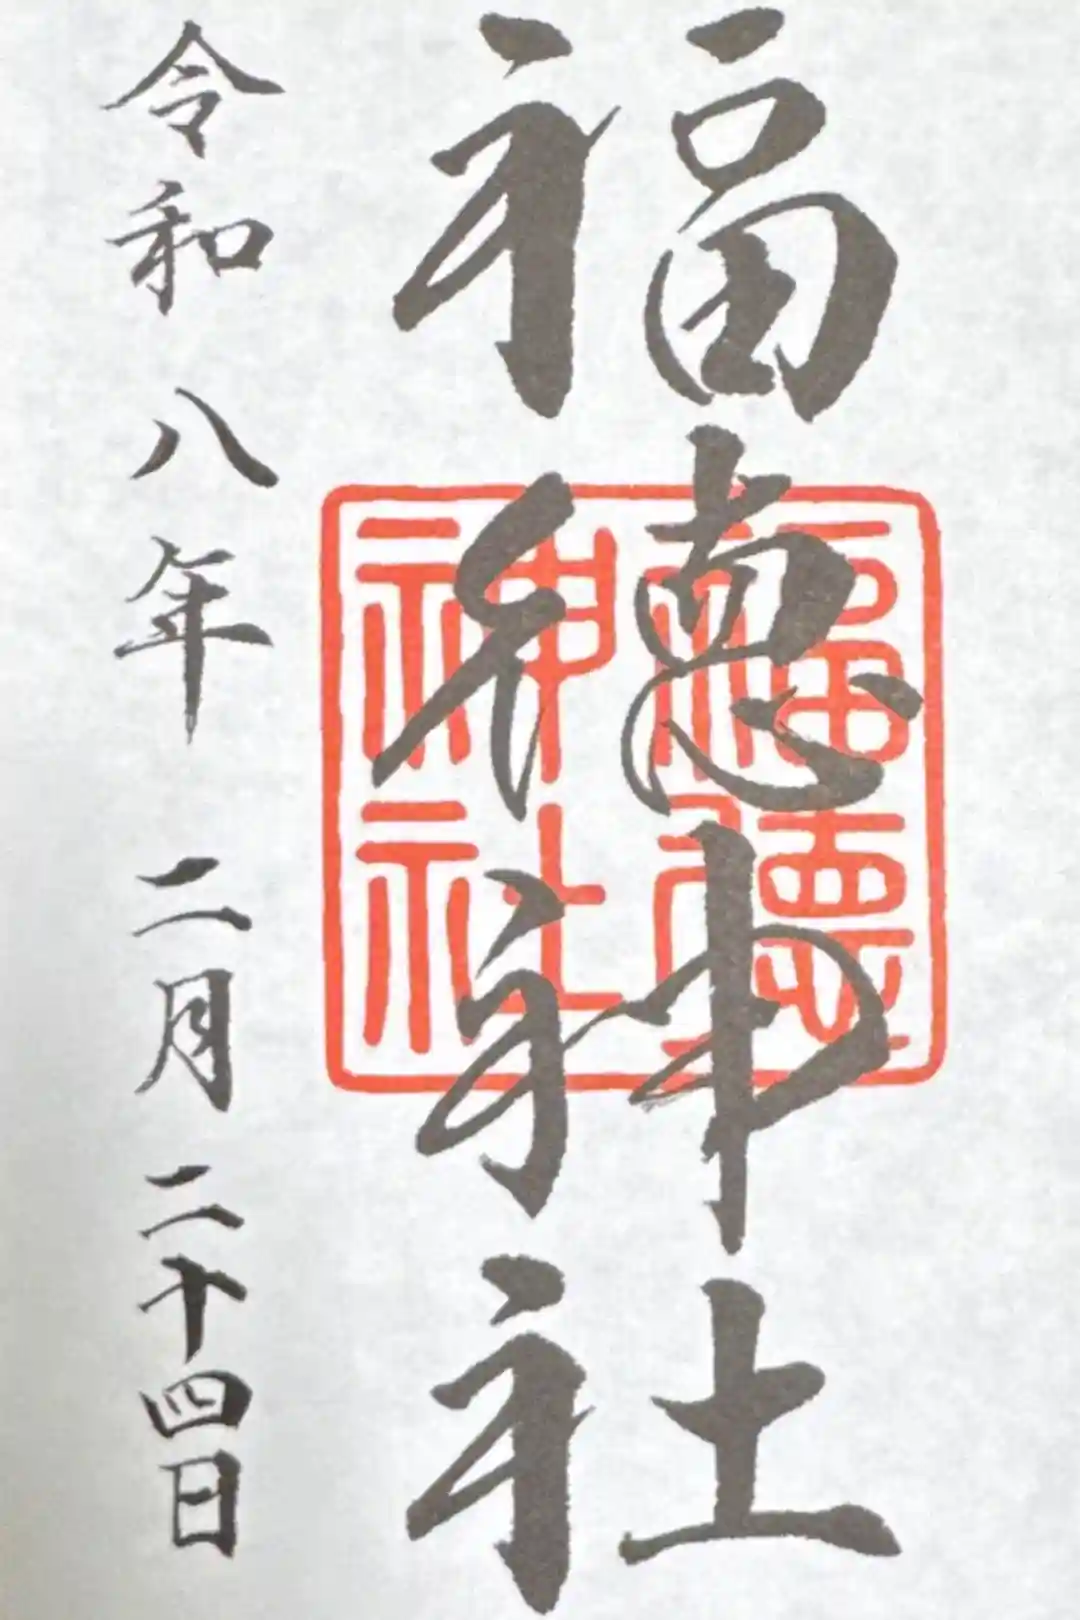 福徳神社
福徳神社
令和八年二月二十四日